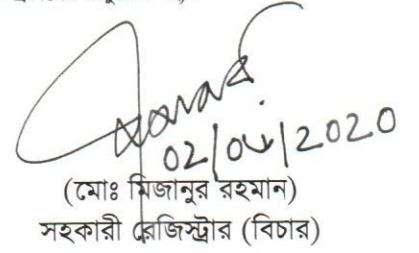 02/04/2020
(মোঃ মিজানুর রহমান)
সহকারী রেজিস্ট্রার (বিচার)